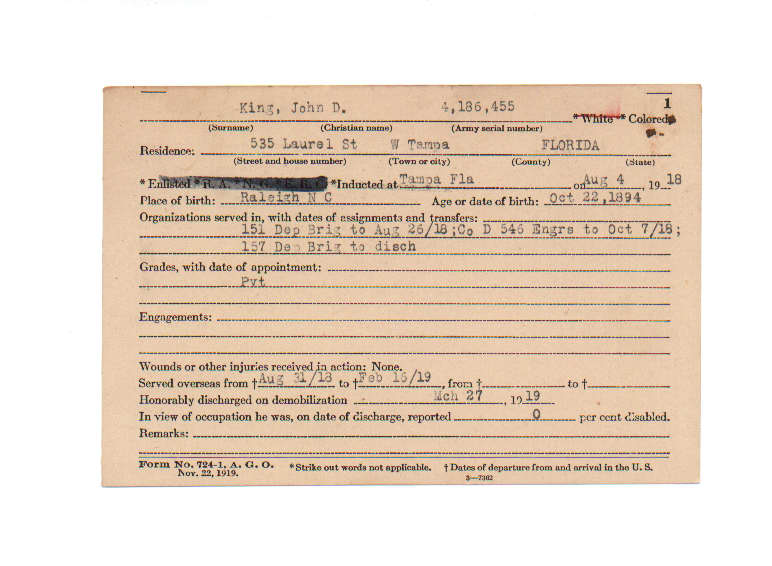 1
King, John D. 4,186,455 * White * Colored
(Surname) (Christian name) (Army serial number)
Residence: 535 Laurel St W Tampa FLORIDA
(Street and house number) (Town or city) (County) (State)
* Enlisted * R. A. * N. G. * E. R. C. *Inducted at Tampa Fla on Aug 4, 19 18
Place of birth: Raleigh N C Age or date of birth: Oct 22,1894
Organizations served in, with dates of assignments and transfers:
151 Dep Brig to Aug 26/18;Co D 546 Engrs to Oct 7/18;
157 Dep Brig to disch
Grades, with date of appointment:
Pvt
Engagements:
Wounds or other injuries received in action: None.
Served overseas from † Aug 31/18 to † Feb 16/19, from † to †
Honorably discharged on demobilization Mch 27, 19 19
In view of occupation he was, on date of discharge, reported 0 per cent disabled.
Remarks:
Form No. 724-1, A. G. O. *Strike out words not applicable. † Dates of departure from and arrival in the U. S.
Nov. 22, 1919. 3—7302